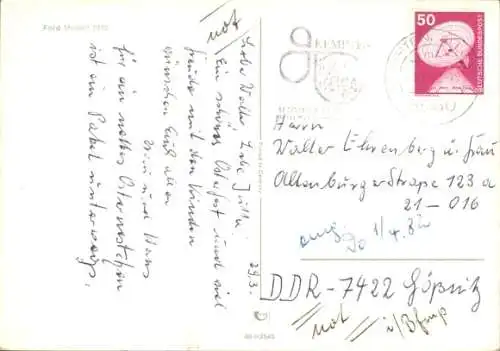 Ford Modell 1910
not
Liebe Walter Liebe Jutta!
Ein schönes Osterfest und viel
Freude mit den Kindern
wünschen Euch allen
und Hans
für ein nettes Osternestchen
ist ein Paket unterwegs.
29.3.
KEMPTEN
50
DEUTSCHE BUNDESPOST
Herrn
Walter Ehrenberg u. Frau
Altenburger Straße 123 a
21-016
1/4.82
DDR-7422 Gößnitz
not